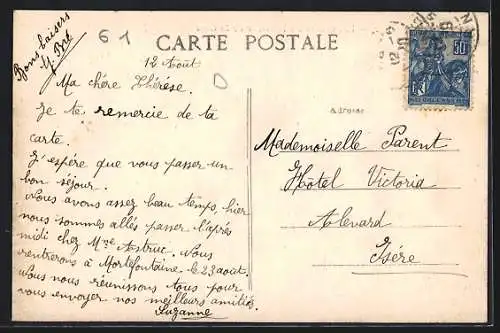 Bons baisers
61
CARTE POSTALE
12 Août
Ma chère Thérèse.
Je te remercie de ta
carte.
J'espère que vous passer un
bon séjour.
Nous avons assez beau temps, hier
nous sommes allés passer l'après
midi chez Mme Astruc. Nous
rentrerons à Mortefontaine le 23 août.
Nous nous réunissons tous pour
vous envoyer nos meilleurs amitiés
Suzanne
50c
Adresse
Mademoiselle Parent
Hôtel Victoria
Allevard
Isère